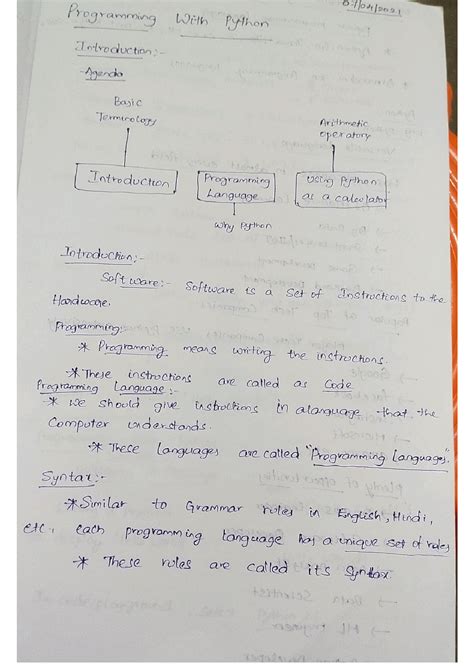 07/04/2021
Programming With Python
Introduction:-
-Agenda
Basic
Terminology
Arithmetic
operatory
Introduction
Programming
Language
Using Python
as a calculator
Why Python
Introduction:-
Software:- Software is a Set of Instructions to the
Hardware.
Programming:-
* Programming means writing the instructions.
* These instructions are called as Code
Programming Language:-
* We should give instructions in a language that the
Computer understands.
* These languages are called "Programming Languages".
Syntax:-
* Similar to Grammar rules in English, Hindi,
etc, each programming language has a unique set of rules
* These rules are called its Syntax